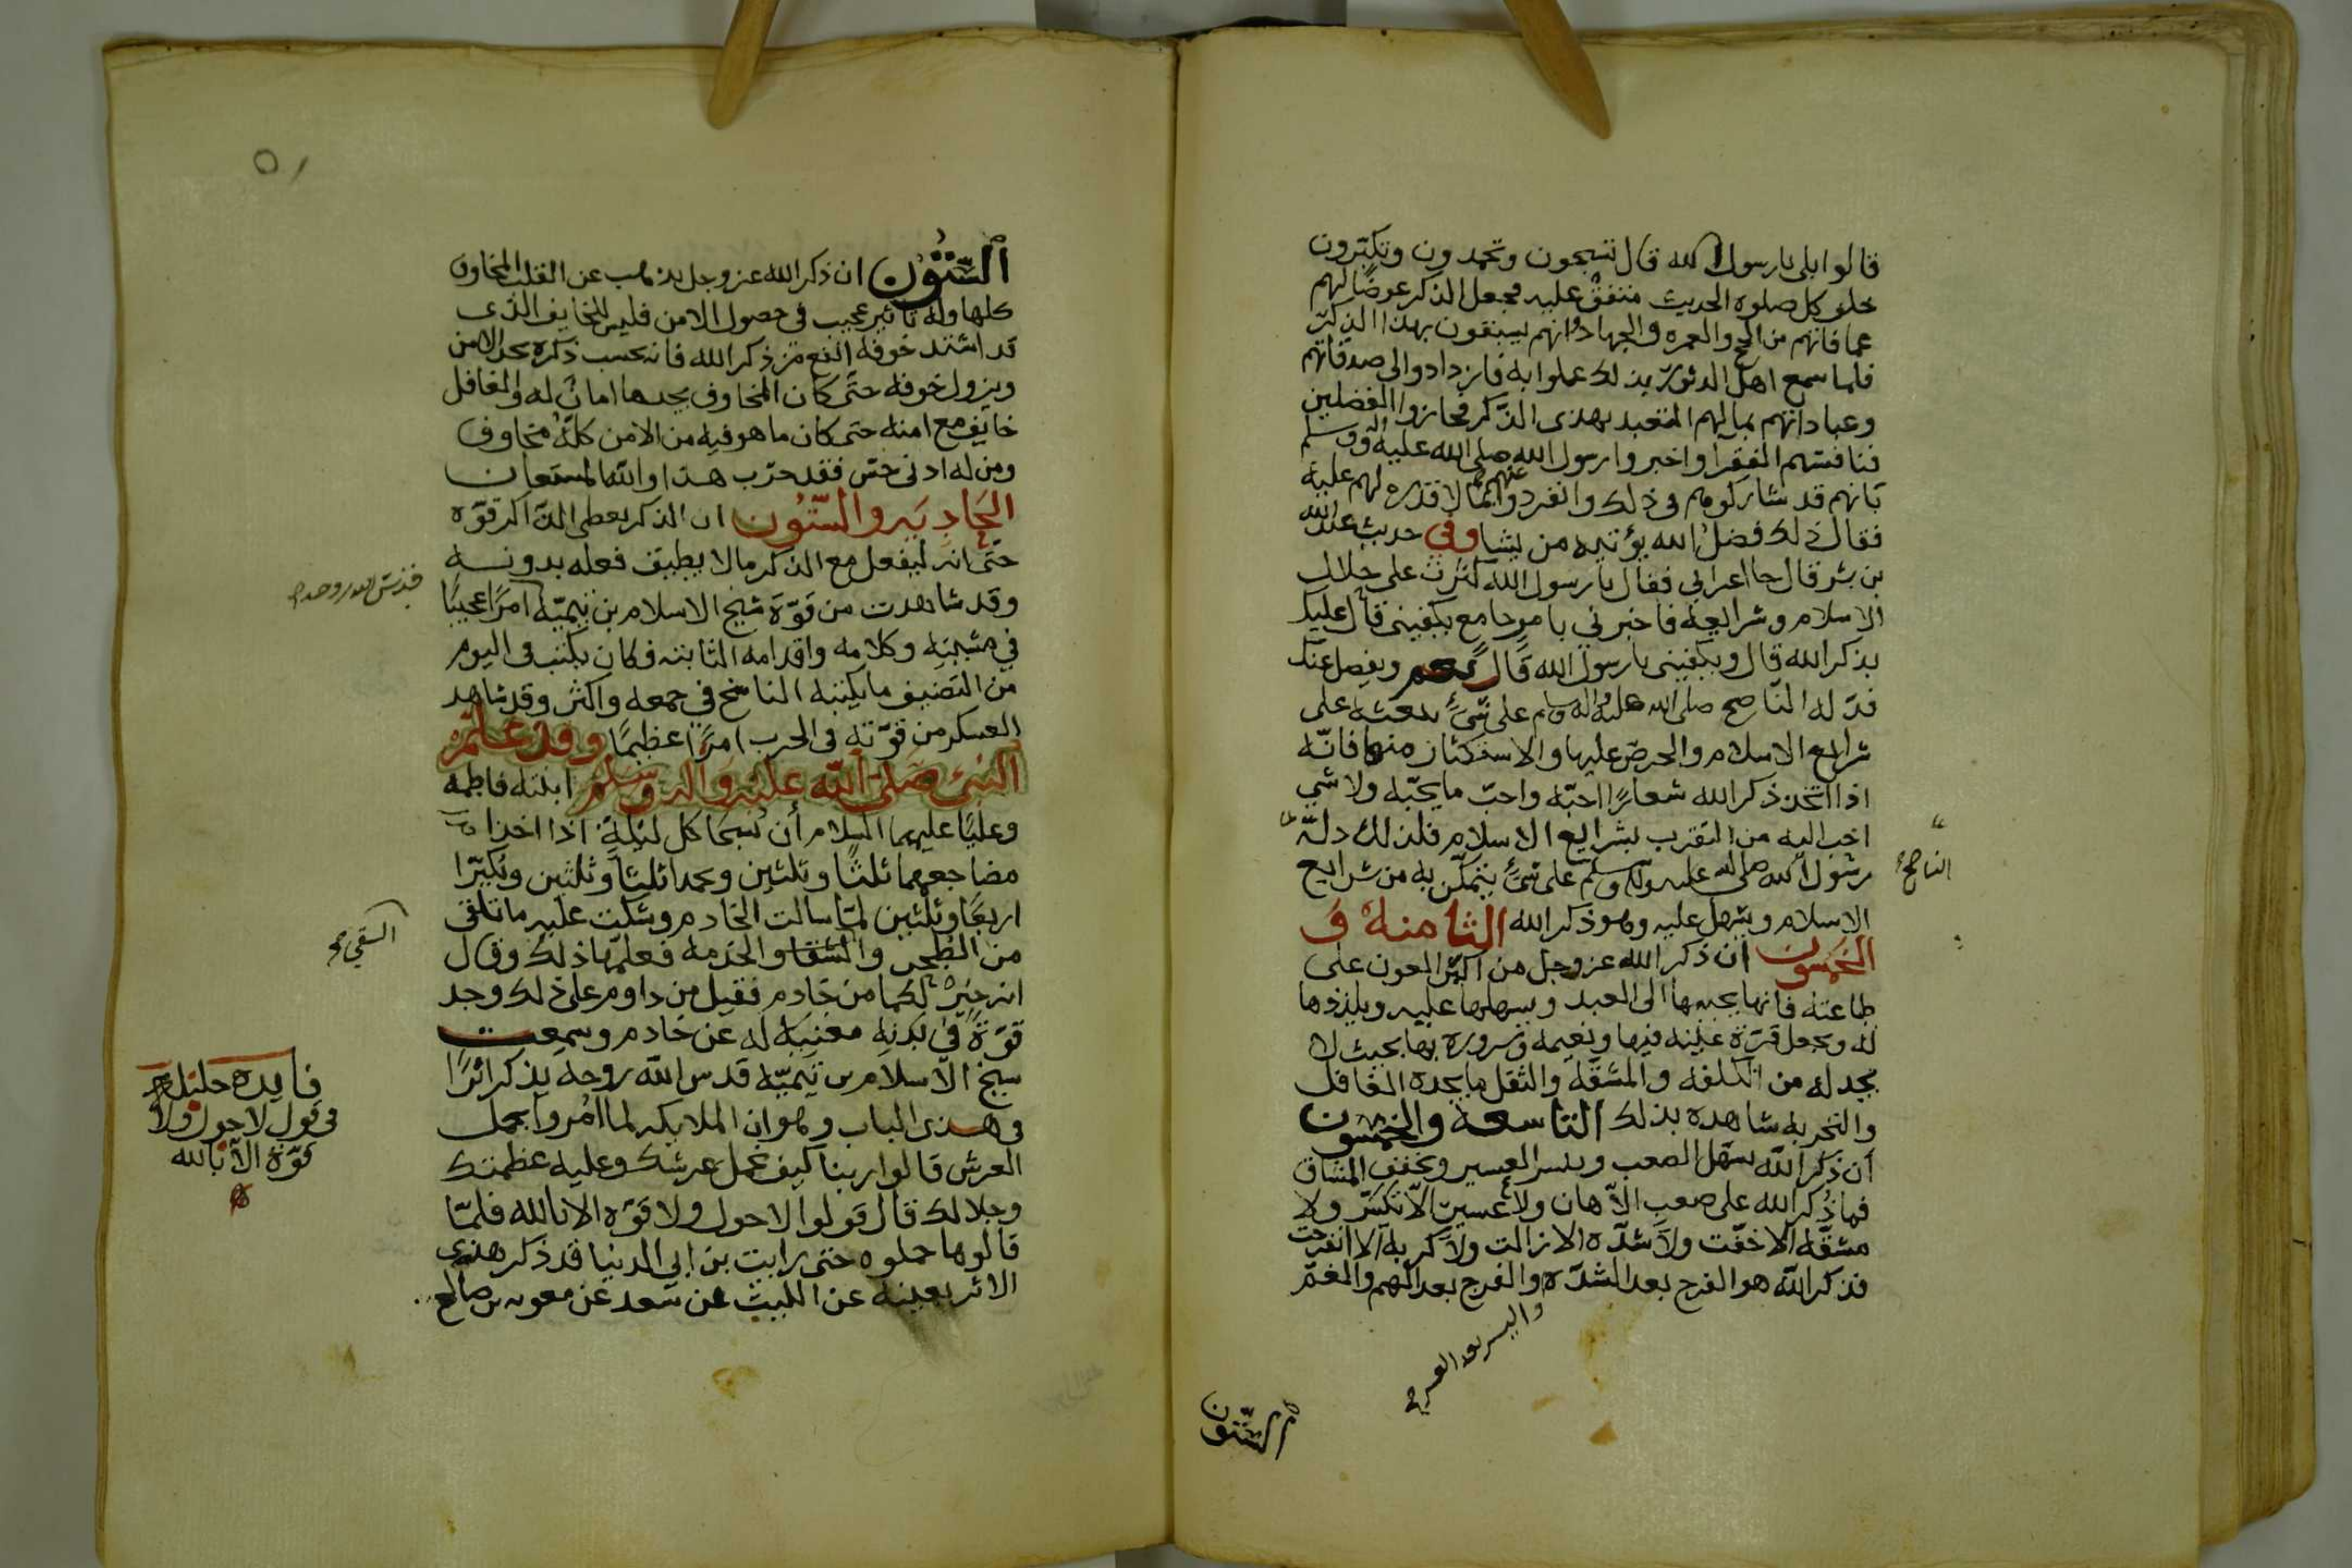 قالوا بلى يا رسول الله قال تسبحون وتحمدون وتكبرون
خلف كل صلوة الحديث متفق عليه فجعل الذكر عوضًا لهم
عما فاتهم من الحج والعمرة والجهاد وانهم يسبقون بهذا الذكر
فلما سمع اهل الدثور بذلك عملوا به فازدادوا الى صدقاتهم
وعباداتهم بمالهم التعبد بهذى الذّكر فحازوا الفضلين
فنافسهم الفقرآ واخبروا رسول الله صلى الله عليه وآله وسلم
بانهم قد شاركوهم فى ذلك وانفردوا عنهم بما لا قدره لهم عليه
فقال ذلك فضل الله يؤتيه من يشا وفي حديث عبد الله
بن بشر قال جا اعرابي فقال يا رسول الله كثرت على خلال
الاسلام وشرايعه فاخبرني بامر جامع يكفينى قال عليك
بذكر الله قال ويكفينى يا رسول الله قال نعم ويفضل عنك
فدّله النّاصح صلى الله عليه واله وسلم على شيء يبعثه على
شرايع الاسلام والحرص عليها والاستكثار منها فانّه
اذا اتخذ ذكر الله شعارًا احبّه واحبّ ما يحبّه ولا شي
احب اليه من التقرب بشرايع الاسلام فلذلك دلّه
رسول الله صلى الله عليه واله وسلم على شيءٍ يتمكّن به من شرايع
الناصح
الاسلام ويسهل عليه وهو ذكر الله الثامنة و
الخمسون ان ذكر الله عز وجل من اكبر العون على
طاعته فانها يحببها الى العبد ويسهلها عليه ويلذذها
له ويجعل قرّة عينه فيها ونعيمه وسروره بها بحيث لا
يجد له من الكلفه والمشقّه والثقل ما يجده الغافل
والتجربه شاهده بذلك التاسعة والخمسون
أن ذكر الله يسهّل الصعب وييسر العسير ويخفف المشاق
فما ذُكر الله على صعب الّا هان ولا عسير الّا تكسّر ولا
مشقّه الا خفّت ولا شدّه الا زالت ولا كربه الا انفرجت
فذكر الله هو الفرج بعد الشدّة والفرج بعد الهم والغمّ
واليسر بعد العسر
السّتّون
٥١
السّتّون ان ذكر الله عز وجل يذهب عن القلب المخاوف
كلها وله تاثير عجيب فى حصول الامن فليس للخايف الذى
قد اشتد خوفه انفع من ذكر الله فانه بحسب ذكره يجد الامن
ويزول خوفه حتّى كان المخاوف يجدها امانٌ له والغافل
خايف مع امنه حتى كان ما هو فيه من الامن كلّه مخاوف
ومن له ادنى حسّ فقد جرّب هذا والله المستعان
الحادية والسّتّون ان الذكر يعطى الذّاكر قوّه
حتّى انه ليفعل مع الذكر ما لا يطيق فعله بدونه
وقد شاهدت من قوّة شيخ الاسلام بن تيميّه امرًا عجيبًا
في مشيته وكلامه واقدامه الثابته فكان يكتب فى اليوم
من التصنيف ما يكتبه الناسخ في جمعه واكثر وقد شاهد
العسكر من قوّته فى الحرب امرًا عظيمًا وقد علّم
النبي صلى الله عليه واله وسلم ابنته فاطمه
وعليًا عليهما السلام أن يُسبحا كل ليلةٍ اذا اخذا
مضاجعهما ثلثًا وثلثين ويحمدا ثلثًا وثلثين ويُكبّرا
اربعًا وثلثين لمّا سالت الخادم وشكت عليه ما تلقى
السقي
من الطحن والشقا والخدمه فعلّمها ذلك وقال
انه خيرٌ لكما من خادم فقيل من داوم على ذلك وجد
قوّةً في بدنه مغنية له عن خادم وسمعت
شيخ الاسلام بن تيميّه قدس الله روحه يذكر اثرًا
فى هذى الباب وهو ان الملايكه لما امُروا بحمل
العرش قالوا ربنا كيف نحمل عرشك وعليه عظمتك
وجلالك قال قولوا لا حول ولا قوّه الا بالله فلمّا
قالوها حملوه حتى رايت بن ابي الدنيا قد ذكر هذى
الاثر بعينه عن الليث عن سعد عن معويه بن صالح
فايده جليله
فى قول لا حول ولا
قوّة الّا بالله